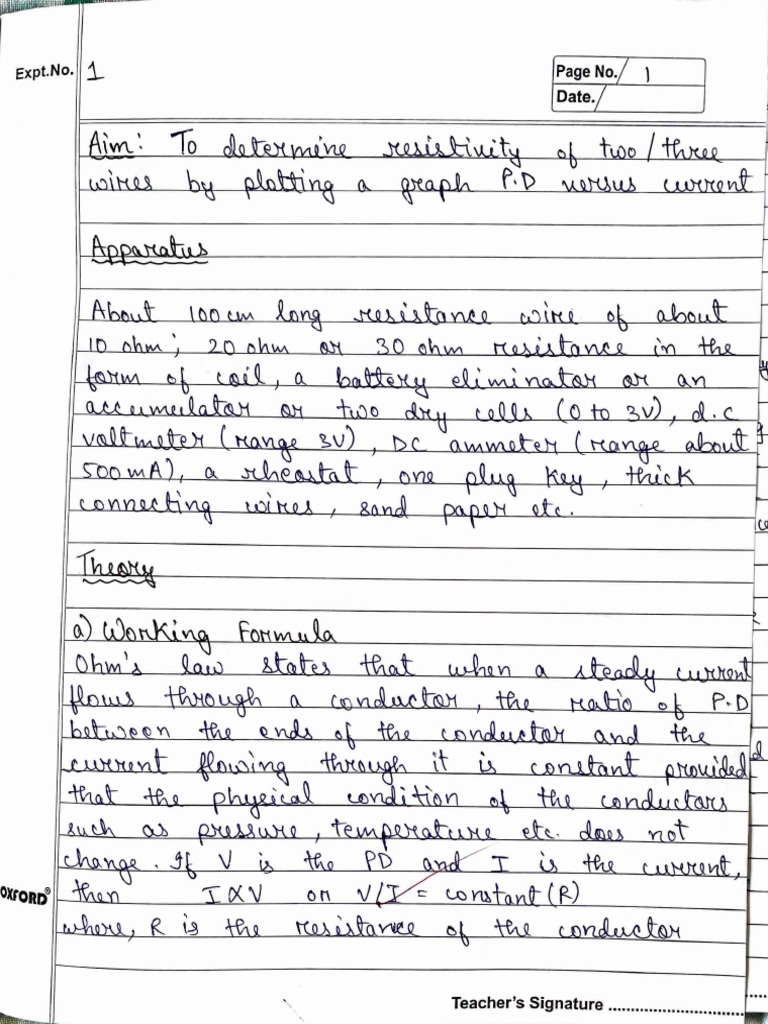 Expt.No. 1
Page No. 1
Date.
Aim: To determine resistivity of two/three
wires by plotting a graph P.D versus current
Apparatus
About 100 cm long resistance wire of about
10 ohm; 20 ohm or 30 ohm resistance in the
form of coil, a battery eliminator or an
accumulator or two dry cells (0 to 3V), d.c
voltmeter (range 3V), DC ammeter (range about
500mA), a rheostat, one plug key, thick
connecting wires, sand paper etc.
Theory
a) Working Formula
Ohm's law states that when a steady current
flows through a conductor, the ratio of P.D
between the ends of the conductor and the
current flowing through it is constant provided
that the physical condition of the conductors
such as pressure, temperature etc. does not
change. If V is the PD and I is the current,
then I∝V or V/I = constant (R)
where, R is the resistance of the conductor
OXFORD®
Teacher's Signature ........................